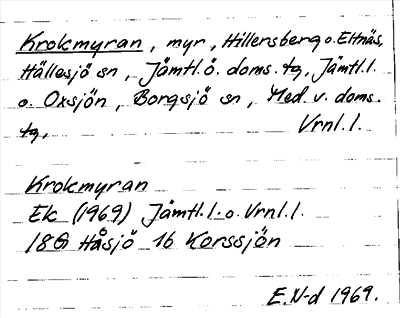 Krokmyran, myr, Hillersberg o. Eltnäs,
Hällesjö sn, Jämtl. ö. doms. tg, Jämtl. l.
o. Oxsjön, Borgsjö sn, Med. v. doms.
tg, Vrnl. l.
Krokmyran
Ek (1969) Jämtl. l. o. Vrnl. l.
18G Håsjö 16 Korssjön
E.N-d 1969.